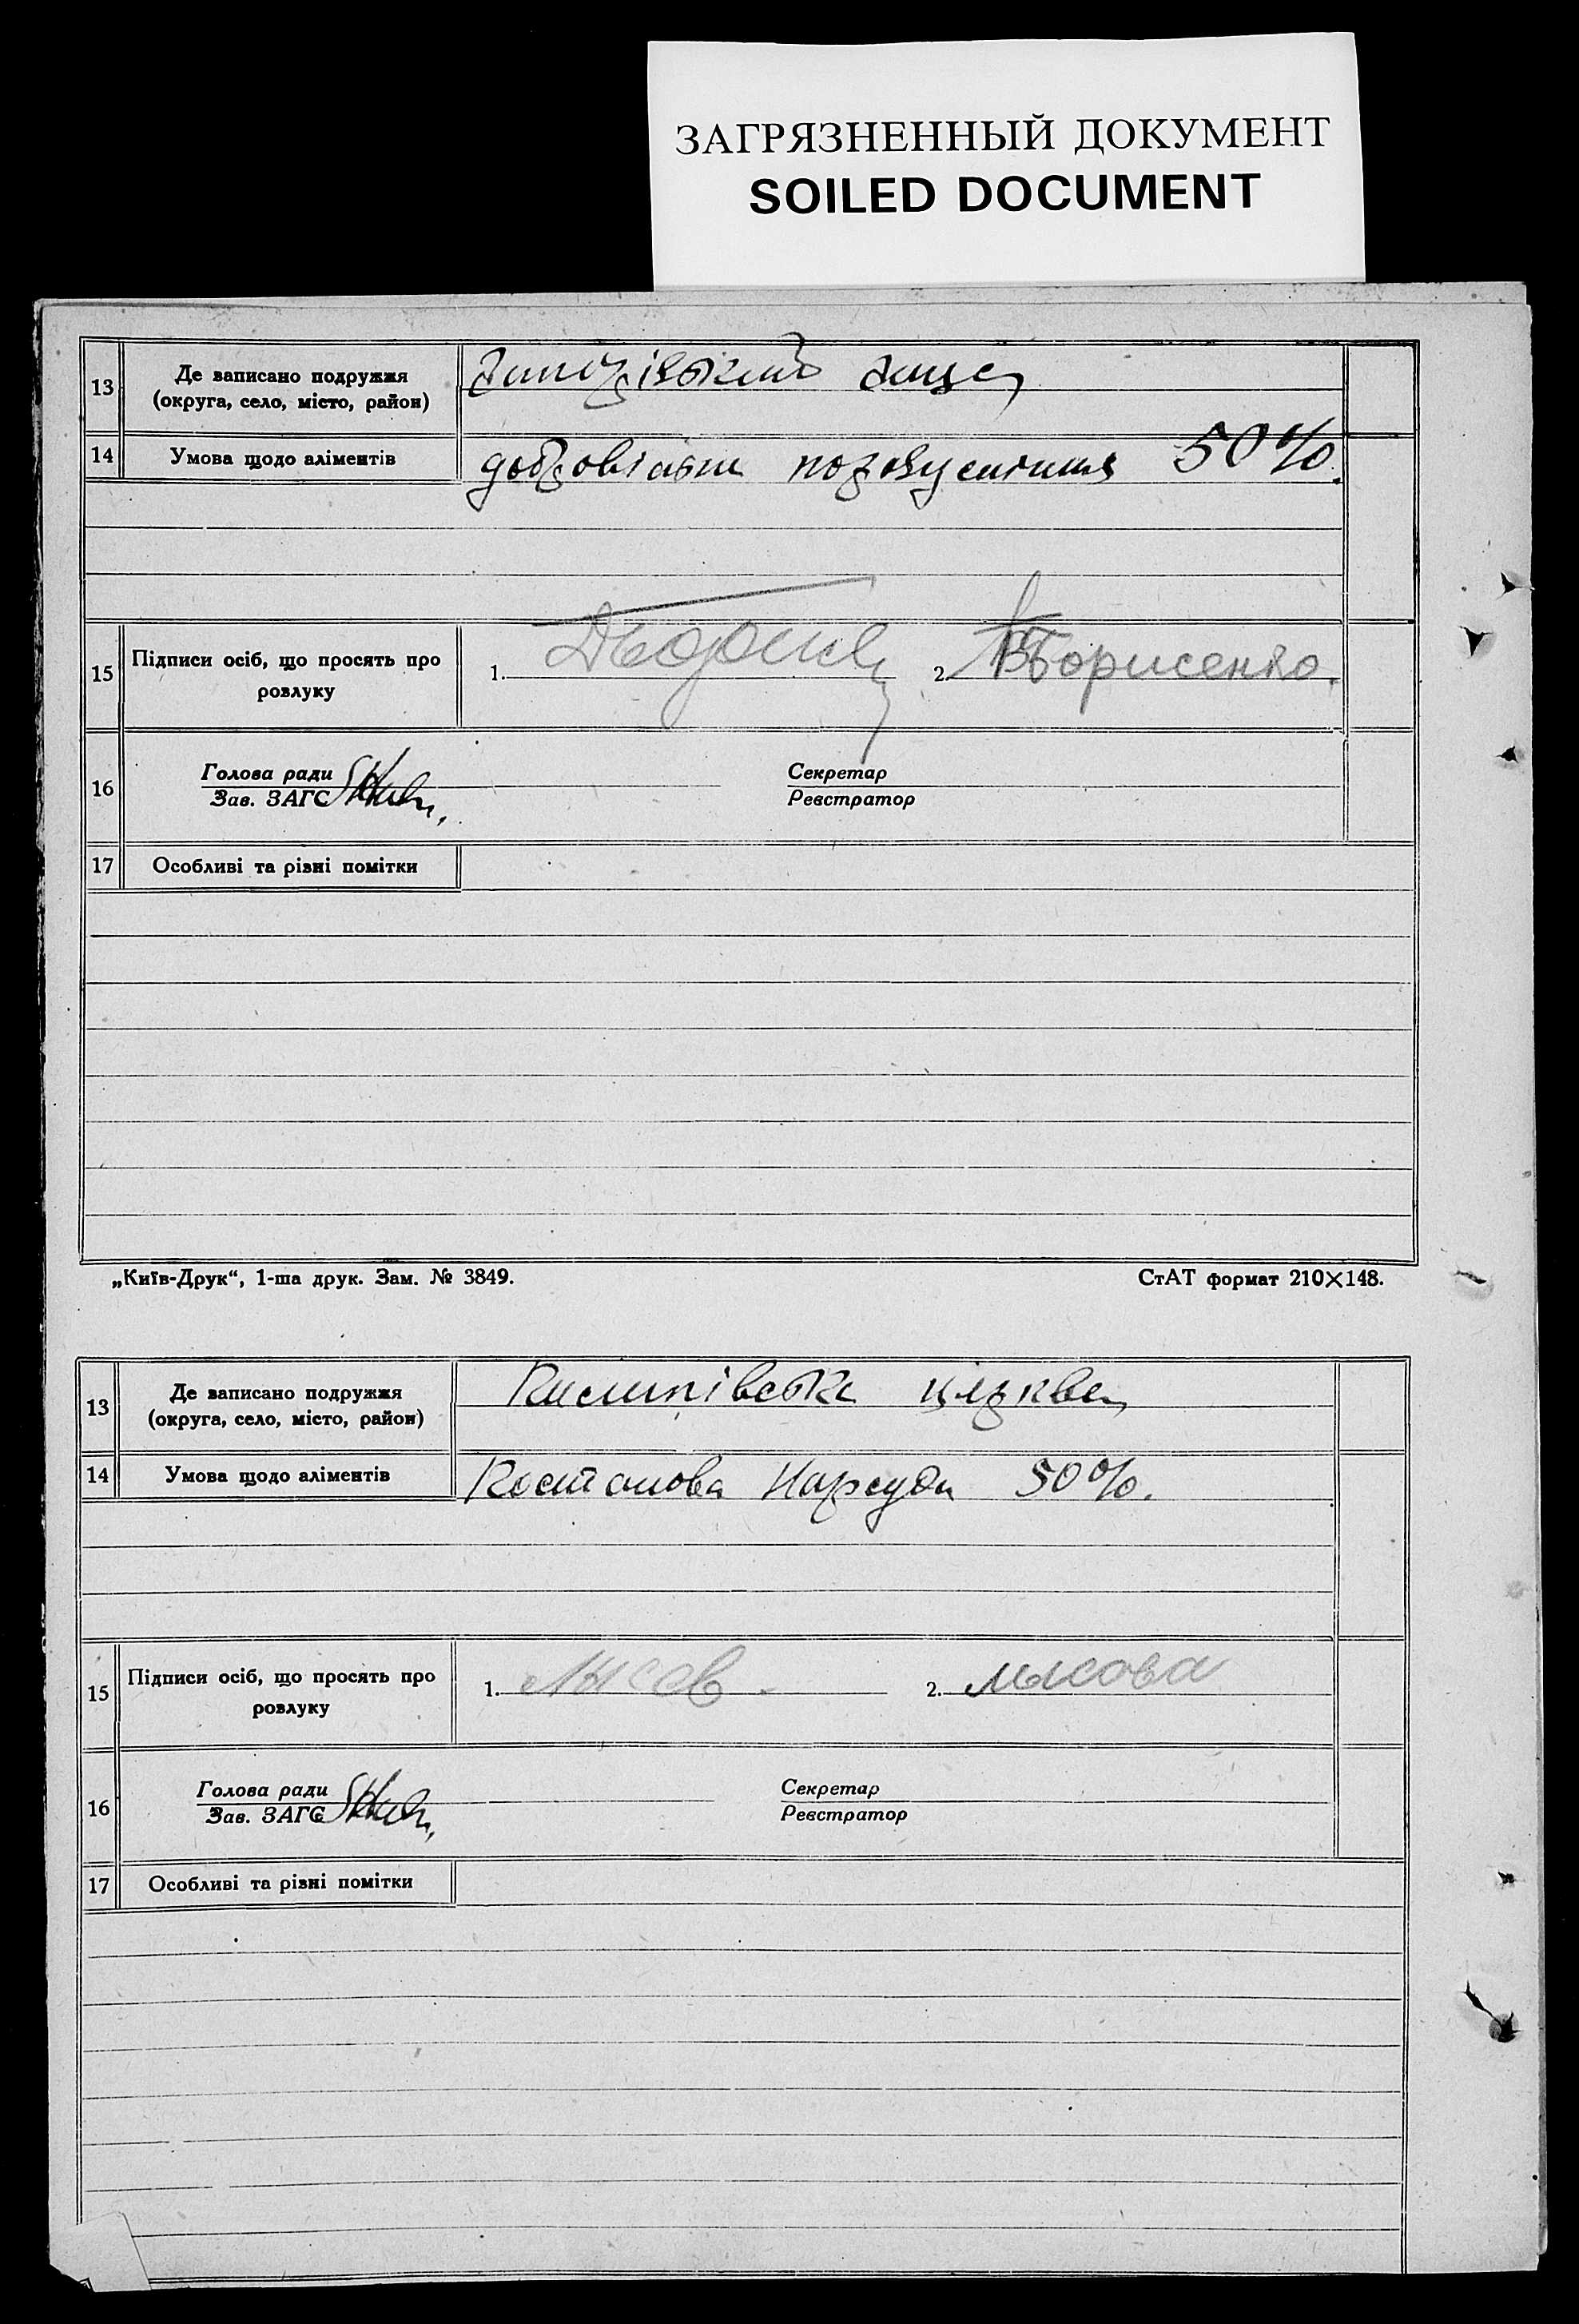 ЗАГРЯЗНЕННЫЙ ДОКУМЕНТ
SOILED DOCUMENT
13 Де записано подружжя
(округа, село, місто, район)
14 Умова щодо аліментів 50%.
15 Підписи осіб, що просять про
розлуку
1. 2. Борисенко.
16 Голова ради Секретар
Зав. ЗАГС Реєстратор
17 Особливі та різні помітки
„Київ-Друк“, 1-ша друк. Зам. № 3849. СтАТ формат 210×148.
13 Де записано подружжя
(округа, село, місто, район)
церква
14 Умова щодо аліментів Постанова Нарсуда 50%.
15 Підписи осіб, що просять про
розлуку
1. Лысов. 2. Лысова
16 Голова ради Секретар
Зав. ЗАГС Реєстратор
17 Особливі та різні помітки